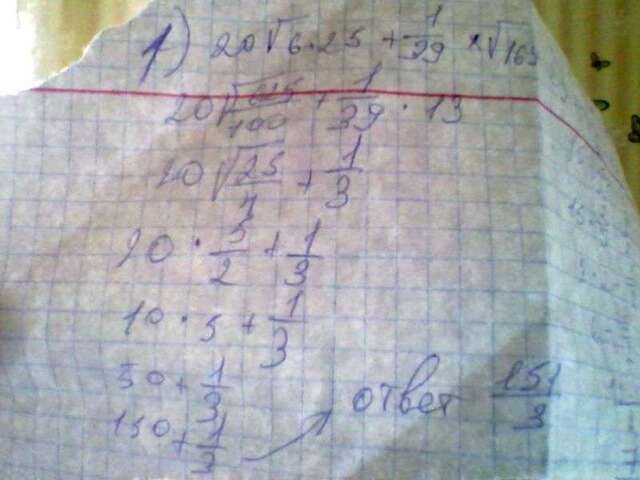 1) 20√6.25 + 1/39 × √169
20√625/100 + 1/39 · 13
20√25/4 + 1/3
20 · 5/2 + 1/3
10 · 5 + 1/3
50 + 1/3
150 + 1/3 → ответ 151/3